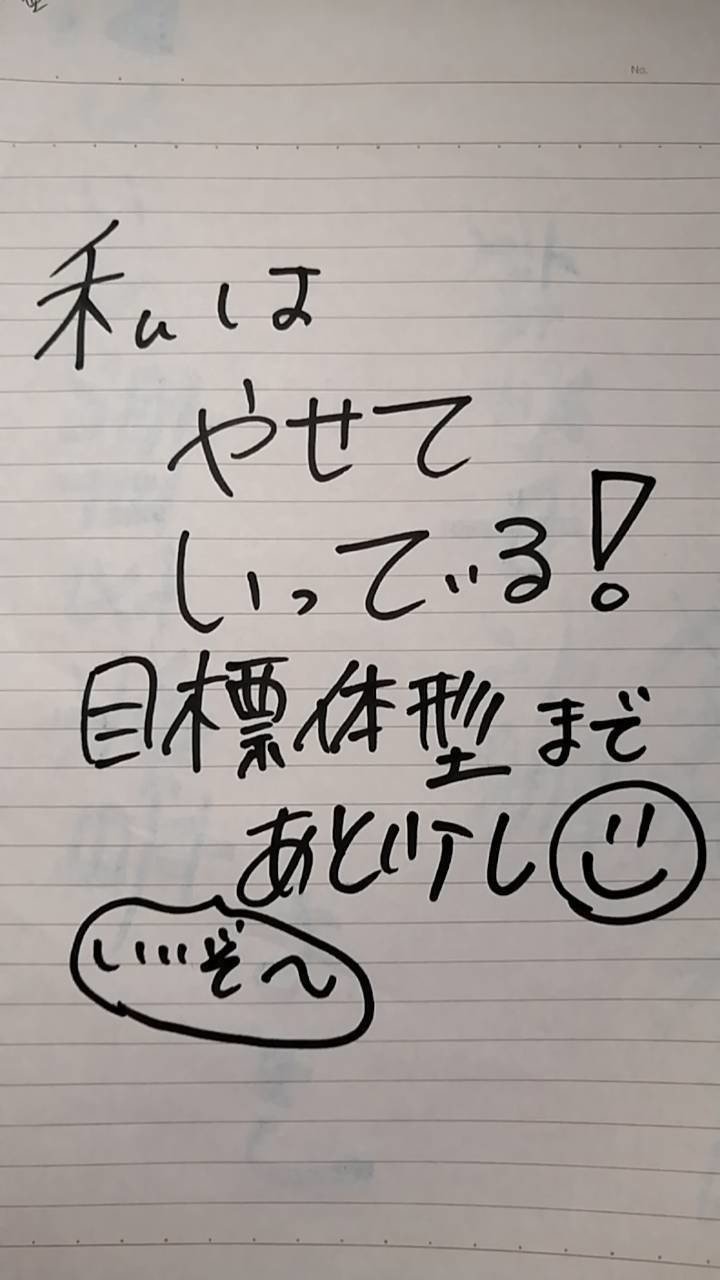 No.
私は
やせて
いっている!
目標体型まで
あと少し
いいぞ〜